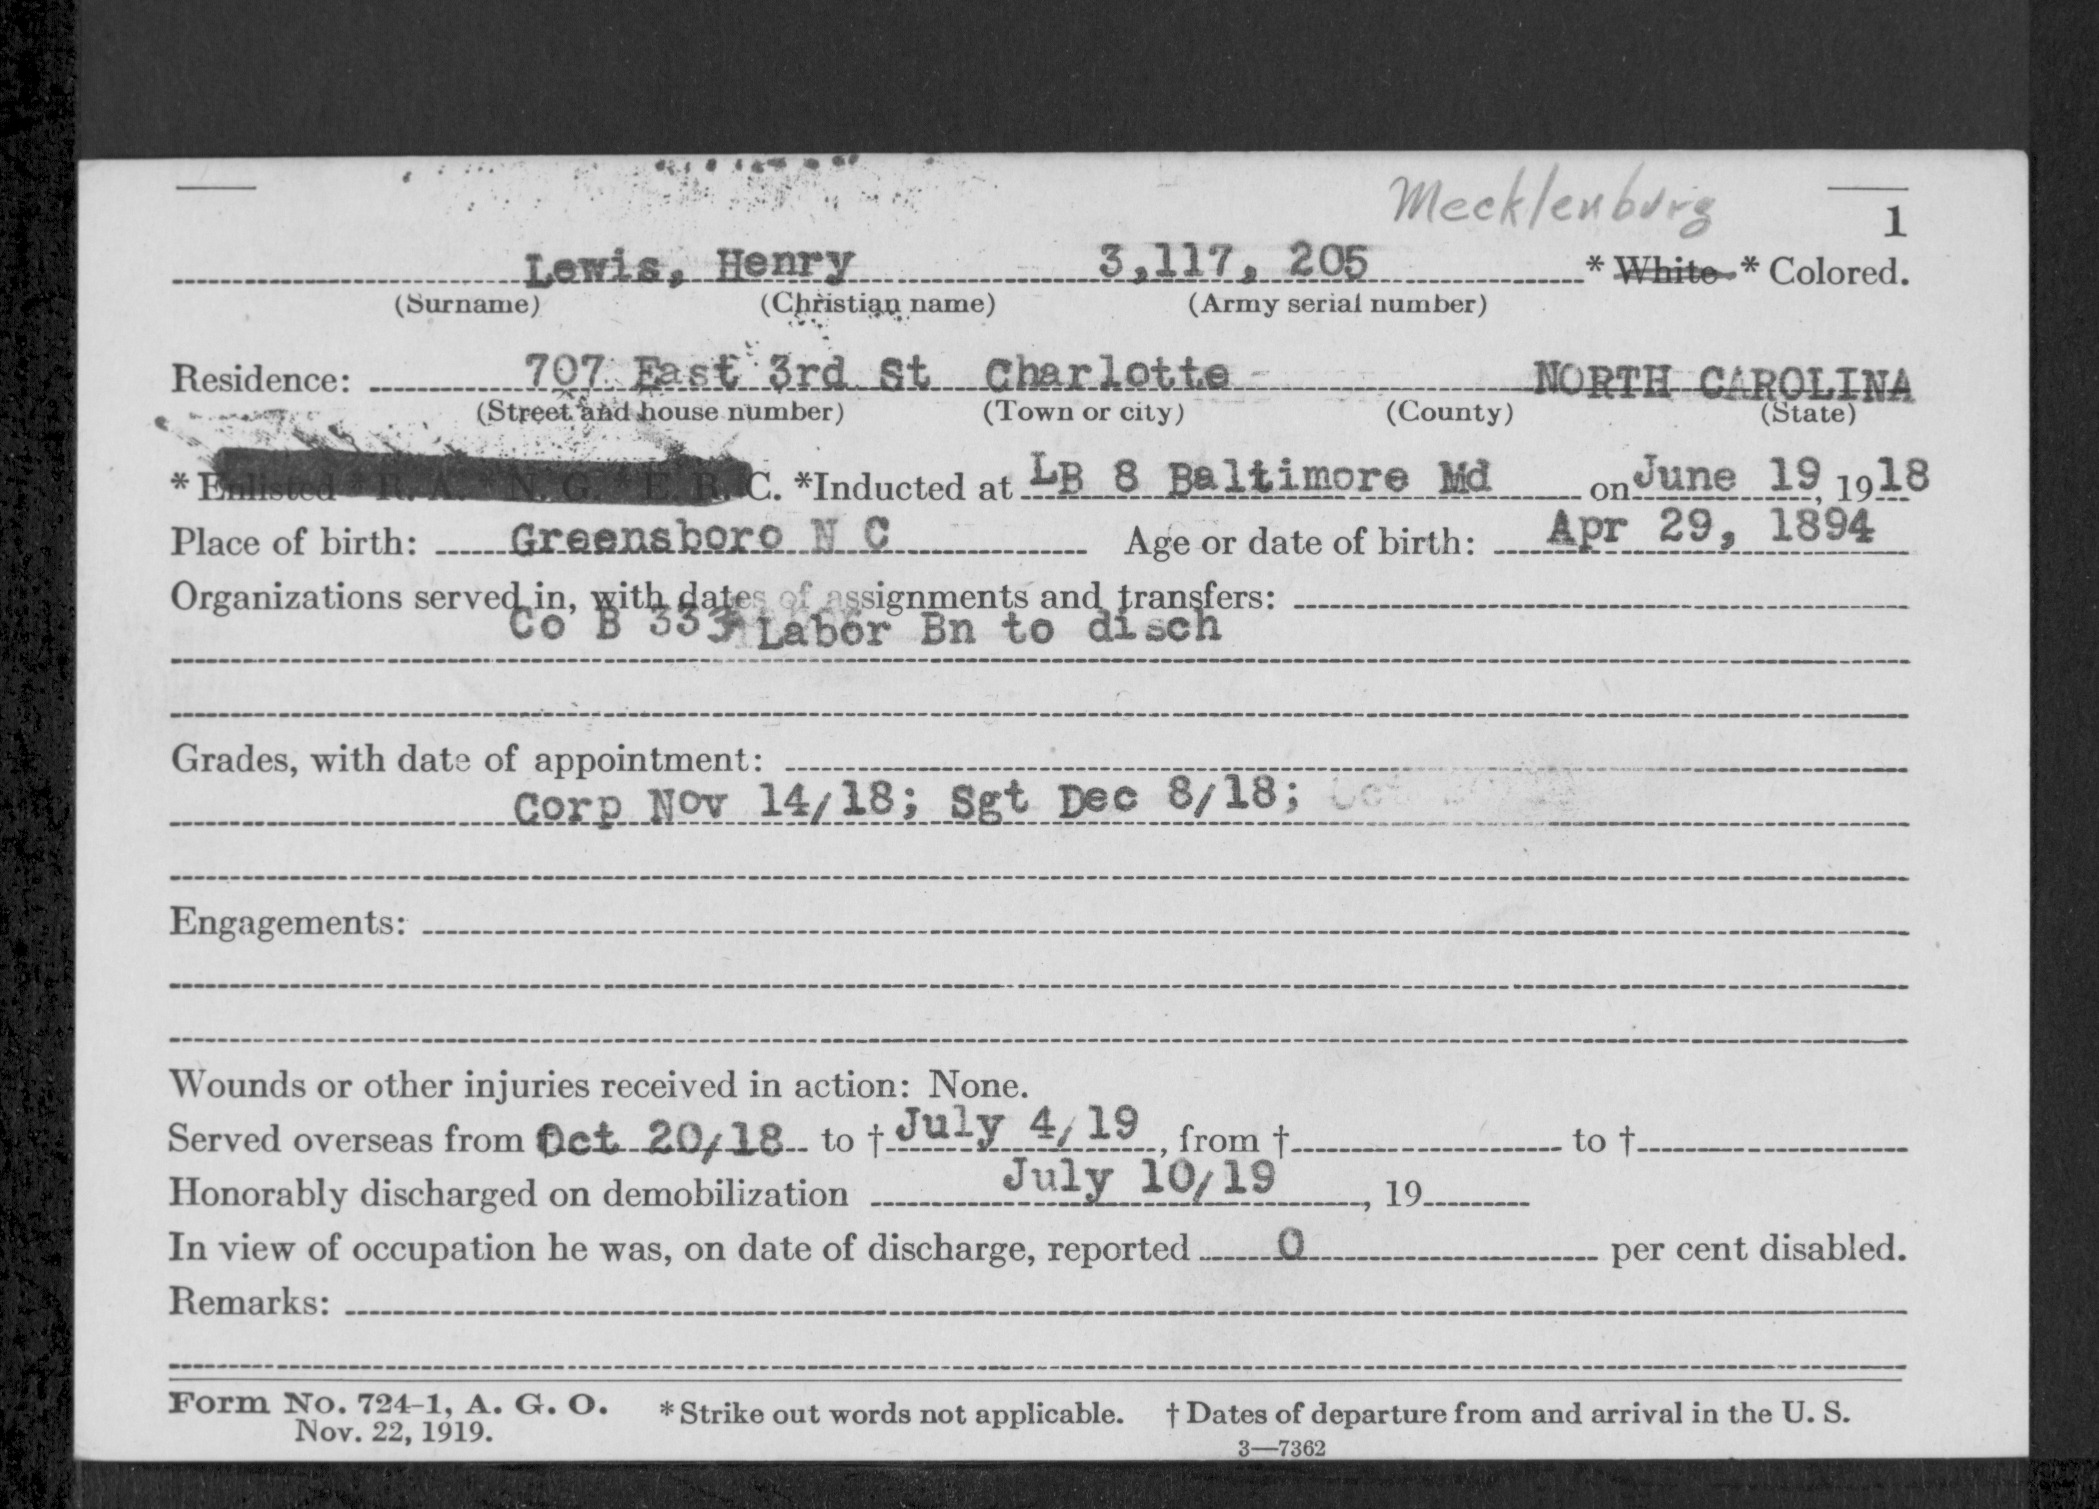 Mecklenburg
1
Lewis, Henry 3,117, 205 * White * Colored.
(Surname) (Christian name) (Army serial number)
Residence: 707 East 3rd St Charlotte NORTH CAROLINA
(Street and house number) (Town or city) (County) (State)
* Enlisted * R. A. * N. G. * E. R. C. *Inducted at LB 8 Baltimore Md on June 19, 1918
Place of birth: Greensboro N C Age or date of birth: Apr 29, 1894
Organizations served in, with dates of assignments and transfers:
Co B 333 Labor Bn to disch
Grades, with date of appointment:
Corp Nov 14/18; Sgt Dec 8/18;
Engagements:
Wounds or other injuries received in action: None.
Served overseas from Oct 20/18 to † July 4/19, from † to †
Honorably discharged on demobilization July 10/19, 19
In view of occupation he was, on date of discharge, reported 0 per cent disabled.
Remarks:
Form No. 724-1, A. G. O. * Strike out words not applicable. † Dates of departure from and arrival in the U. S.
Nov. 22, 1919.
3—7362